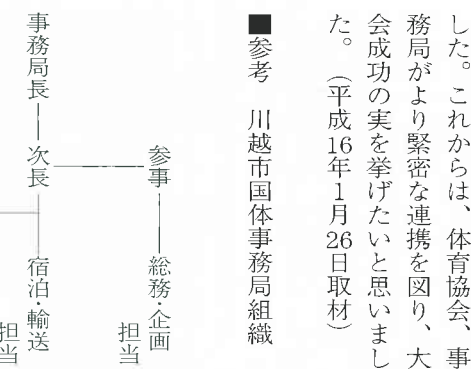 した。これからは、体育協会、事
務局がより緊密な連携を図り、大
会成功の実を挙げたいと思いまし
た。（平成16年1月26日取材）
■参考　川越市国体事務局組織
事務局長
次長
参事
総務・企画
担当
宿泊・輸送
担当